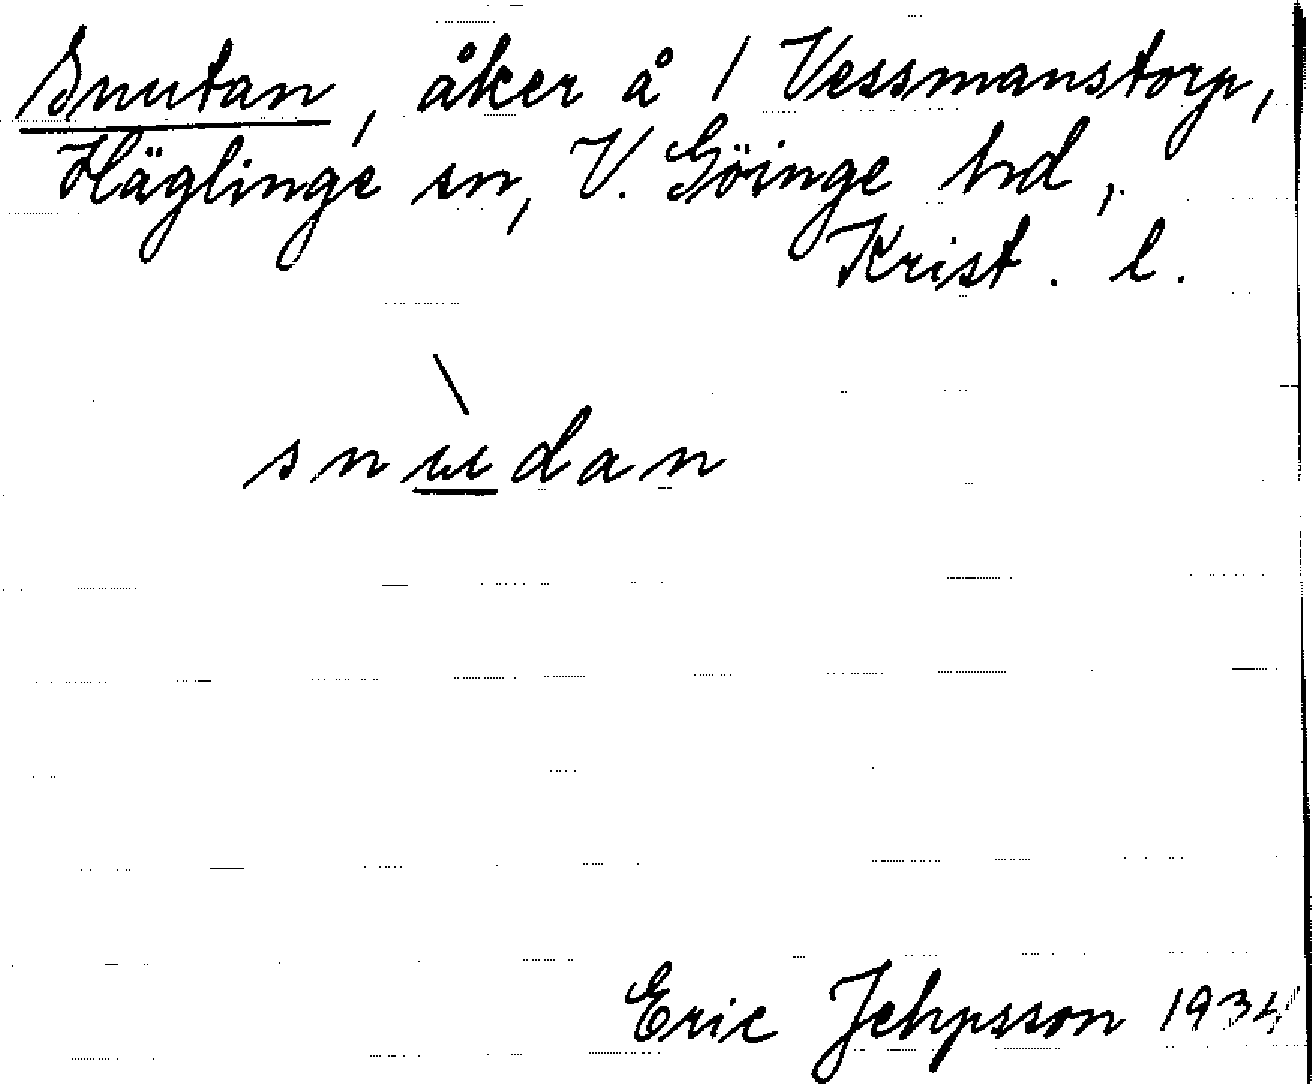 Snutan, åker å 1 Vessmanstorp,
Häglinge sn, V. Göinge hd,
Krist. l.
snùdan
Eric Jehpsson 1934